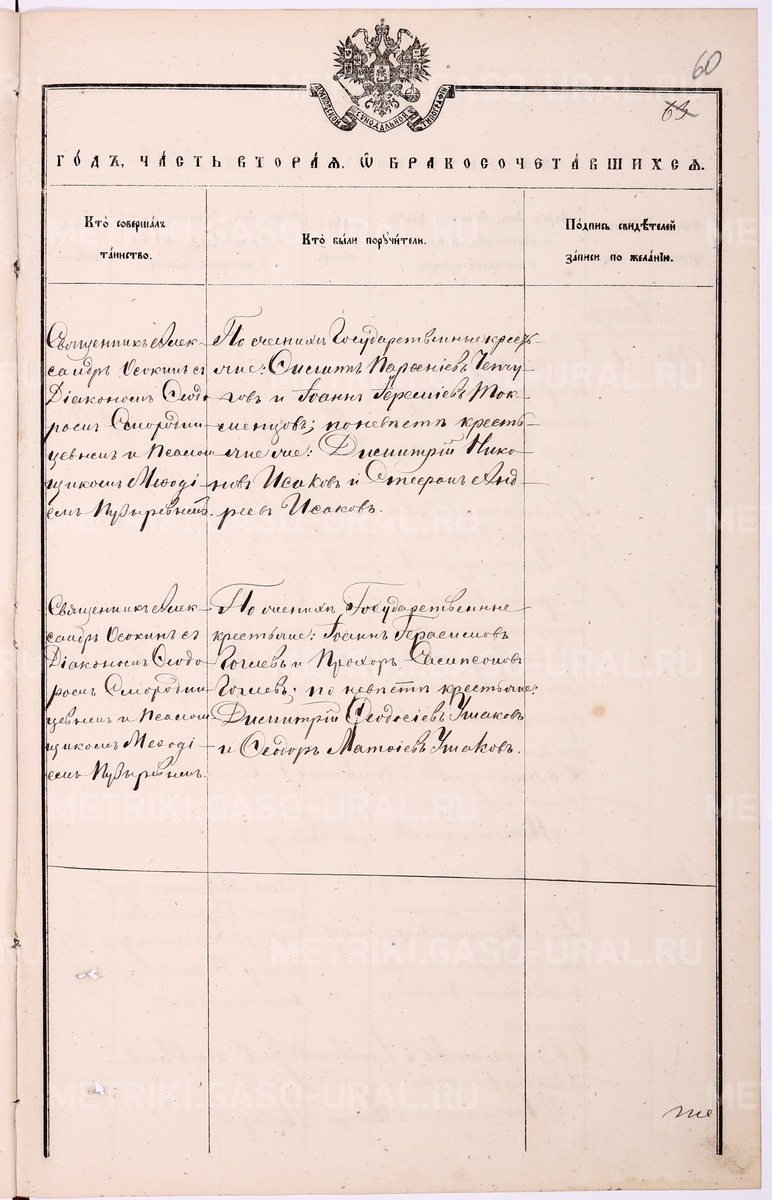 60
63
МОСКОВСКОЙ СѴНОДАЛЬНОЙ ТИПОГРАФІИ
ГО́ДЪ, ЧА́СТЬ ВТОРА́Я, Ѡ БРАКОСОЧЕТА́ВШИХСѦ.
Кто̀ соверша́лъ
та́инство.
Кто̀ бы́ли поручи́тели.
По́дпись свидѣ́телей
за́писи по жела́нїю.
Священникъ Алек-
сандръ Осокинъ съ
Діакономъ Ѳеодо-
ромъ Смородин-
цевымъ и Псалом-
щикомъ Меѳоді-
емъ Пузыревымъ.
По женихѣ Государственные кресть-
яне:
и Іоаннъ
по невѣстѣ кресть-
яне: Димитрій Нико-
новъ Исаковъ и Стефанъ Анд-
реевъ Исаковъ.
Священникъ Алек-
сандръ Осокинъ съ
Діакономъ Ѳеодо-
ромъ Смородин-
цевымъ и Псалом-
щикомъ Меѳоді-
емъ Пузыревымъ.
По женихѣ Государственные
крестьяне: Іоаннъ Герасимовъ
Гоглевъ и Прохоръ Сампсоновъ
Гоглевъ; по невѣстѣ крестьяне:
Димитрій Ѳеодосіевъ Ушаковъ
и Ѳеодоръ Матѳіевъ Ушаковъ.
METRIKI.GASO-URAL.RU